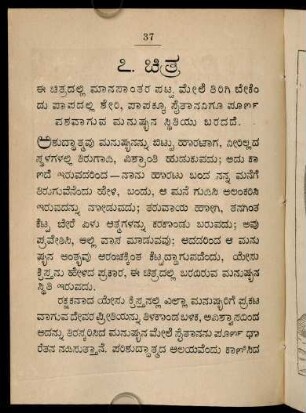 37
೭. ಚಿತ್ರ
ಈ ಚಿತ್ರದಲ್ಲಿ ಮಾನಸಾಂತರ ಪಟ್ಟ ಮೇಲೆ ತಿರಿಗಿ ಬೇಕೆಂ
ದು ಪಾಪದಲ್ಲಿ ಶೇರಿ, ಪಾಪಕ್ಕೂ ಸೈತಾನನಿಗೂ ಪೂರ್ಣ
ವಶವಾಗುವ ಮನುಷ್ಯನ ಸ್ಥಿತಿಯು ಬರದದೆ.
ಅಶುದ್ಧಾತ್ಮವು ಮನುಷ್ಯನನ್ನು ಬಿಟ್ಟು, ಹಾರಟಾಗ, ನೀರಿಲ್ಲದ
ಸ್ಥಳಗಳಲ್ಲಿ ತಿರುಗಾಡಿ, ವಿಶ್ರಾಂತಿ ಹುಡುಕುವದು; ಅದು ಕಾ
ಣದೆ ಇರುವದರಿಂದ—ನಾನು ಹಾರಟು ಬಂದ ನನ್ನ ಮನೆಗೆ
ತಿರುಗುವೆನೆಂದು ಹೇಳಿ, ಬಂದು, ಆ ಮನೆ ಗುಡಿಸಿ ಅಲಂಕರಿಸಿ
ಇರುವದನ್ನು ನೋಡುವದು; ತರುವಾಯ ಹೋಗಿ, ತನಗಿಂತ
ಕೆಟ್ಟ ಬೇರೆ ಏಳು ಆತ್ಮಗಳನ್ನು ಕರಕೊಂಡು ಬರುವದು; ಅವು
ಪ್ರವೇಶಿಸಿ, ಅಲ್ಲಿ ವಾಸ ಮಾಡುವವು; ಆದದರಿಂದ ಆ ಮನು
ಷ್ಯನ ಅಂತ್ಯವು ಆರಂಭಕ್ಕಿಂತ ಕೆಟ್ಟದ್ದಾಗುವದೆಂದು, ಯೇಸು
ಕ್ರಿಸ್ತನು ಹೇಳಿದ ಪ್ರಕಾರ, ಈ ಚಿತ್ರದಲ್ಲಿ ಬರದಿರುವ ಮನುಷ್ಯನ
ಸ್ಥಿತಿ ಇರುವದು.
ರಕ್ಷಕನಾದ ಯೇಸು ಕ್ರಿಸ್ತನಲ್ಲಿ ಎಲ್ಲಾ ಮನುಷ್ಯರಿಗೆ ಪ್ರಕಟ
ವಾಗುವ ದೇವರ ಪ್ರೀತಿಯನ್ನು ತಿಳಕೊಂಡ ಬಳಿಕ, ಅವಿಶ್ವಾಸದಿಂದ
ಅದನ್ನು ತಿರಸ್ಕರಿಸಿದ ಮನುಷ್ಯನ ಮೇಲೆ ಸೈತಾನನು ಪೂರ್ಣ ಧಾ
ರೆತನ ನಡಿಸುತ್ತಾನೆ. ಪರಿಶುದ್ಧಾತ್ಮದ ಆಲಯವೆಂದು ಕಾಣಿಸಿದ